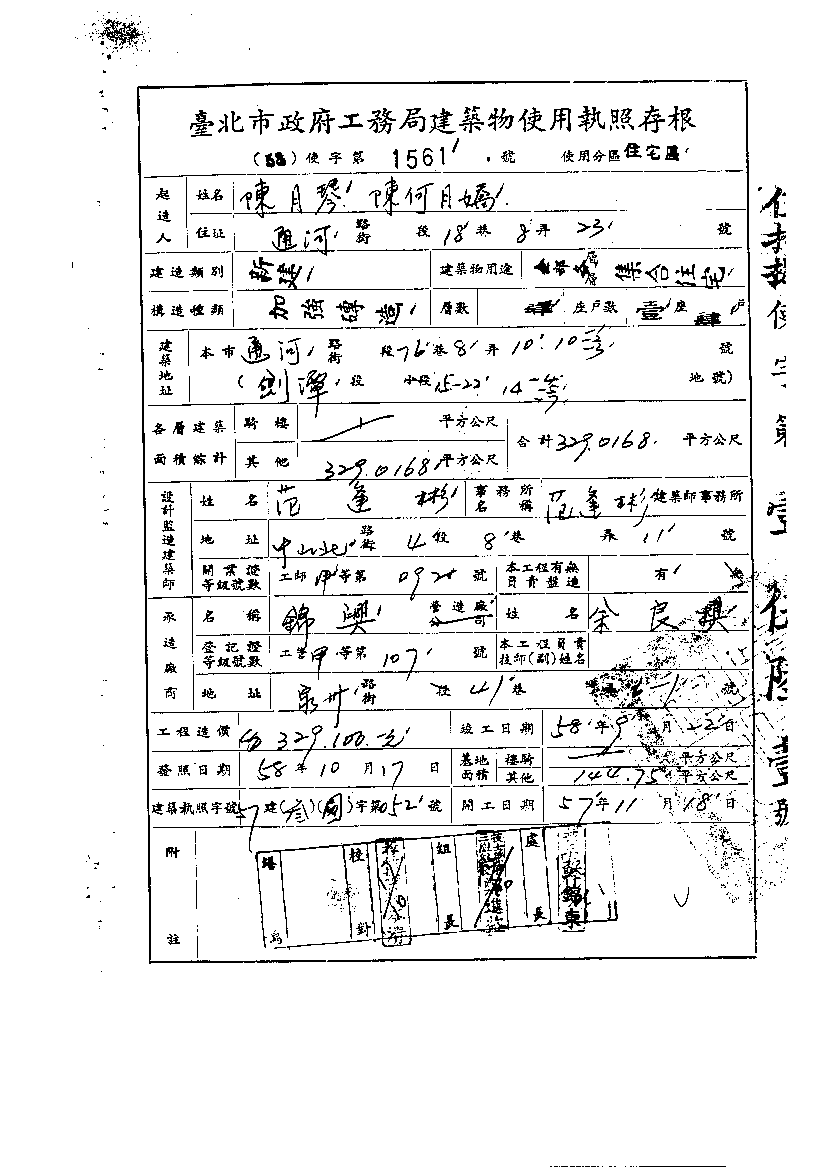 臺北市政府工務局建築物使用執照存根
(58)使字第 1561 號 使用分區 住宅區
起造人 姓名 陳月琴 陳何月嬌
住址 通河 路街 段 18 巷 8 弄 23 號
建造類別 新建 建築物用途 集合住宅
構造種類 加強磚造 層數 肆 座戶數 壹 座 肆 戶
建築地址 本市 通河 路街 段 76 巷 8 弄 10. 10 號
(劍潭 段 小段 15-22 14 地號)
各層建築面積綜計 騎樓 平方公尺 合計 329.0168 平方公尺
其他 329.0168 平方公尺
設計監造建築師 姓名 范逢彬 事務所名稱 范逢彬 建築師事務所
地址 中山北 路街 4 段 8 巷 弄 11 號
開業證等級號數 工師 甲 等第 092 號 本工程有無負責監造 有 無
承造廠商 名稱 錦興 營造廠公司 姓名 余良
登記證等級號數 工營 甲 等第 107 號 本工程負責技師(副)姓名
地址 泉州 路街 段 41 巷 號
工程造價 329,100.元 竣工日期 58 年 9 月 22 日
發照日期 58 年 10 月 17 日 基地面積 騎樓 平方公尺
其他 144.75 平方公尺
建築執照字號 57 建( )( )字第 052 號 開工日期 57 年 11 月 18 日
附註
繕寫 校對 組長 處長
使字第壹伍陸壹號